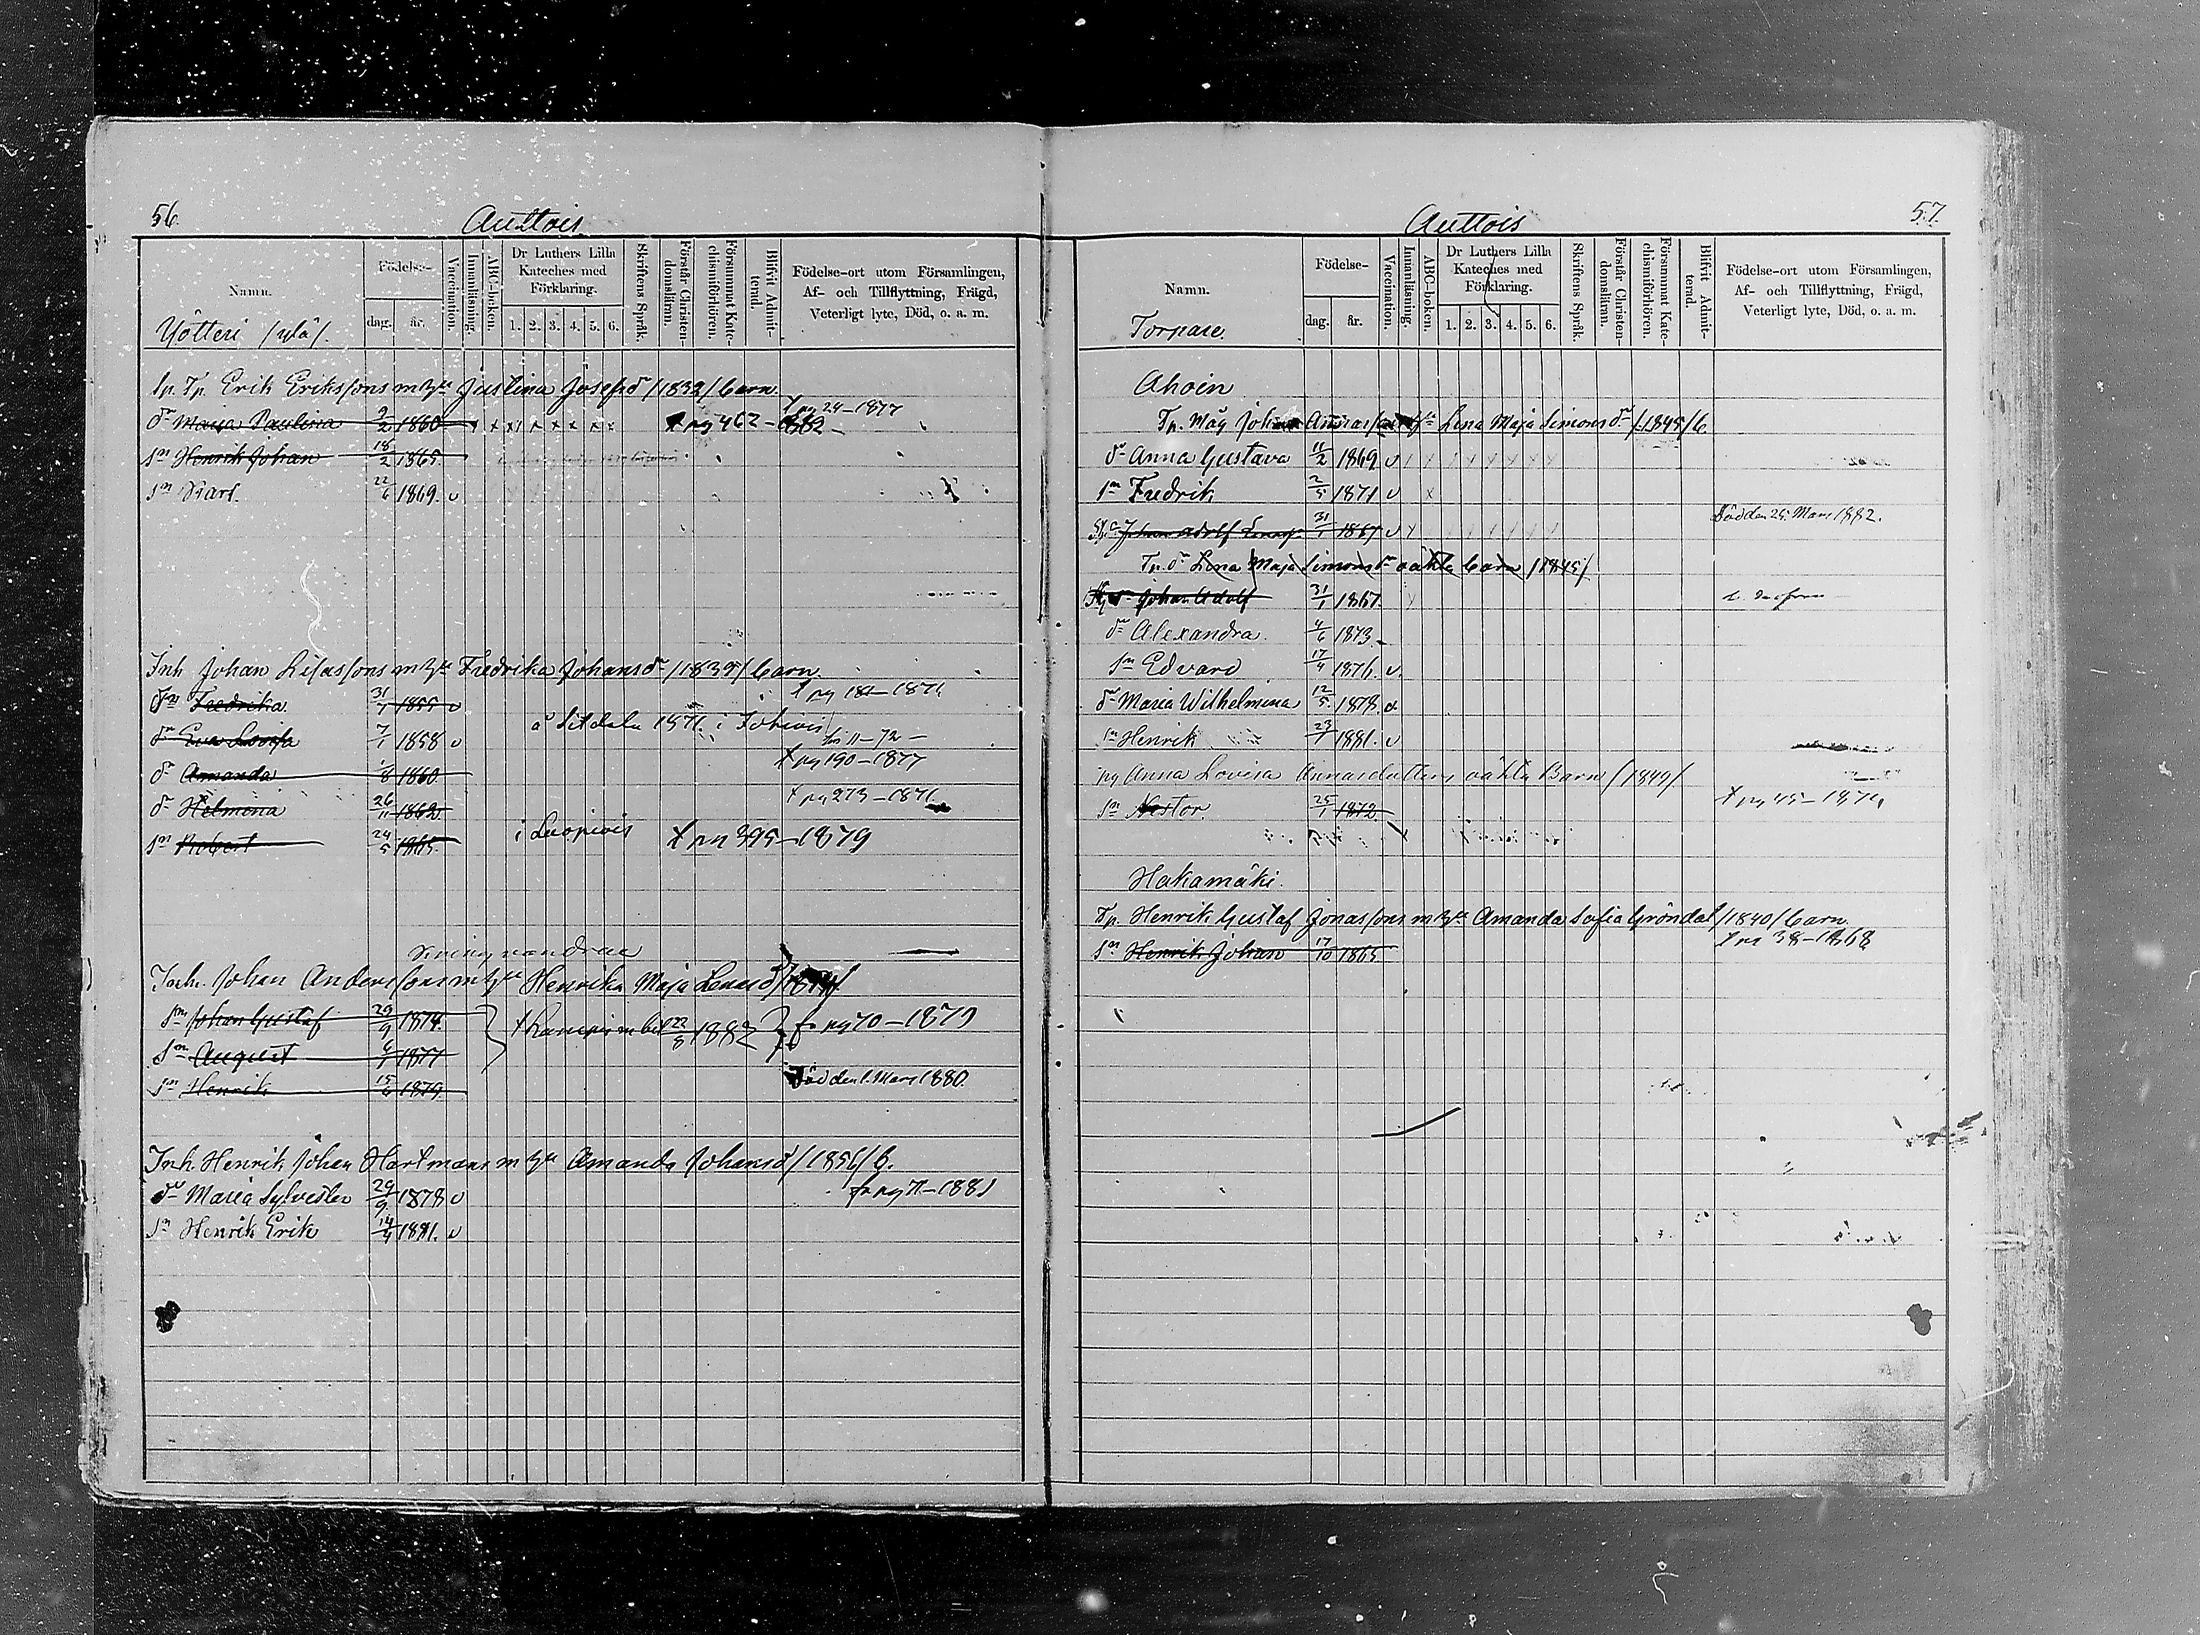 56.
Auttois
Namn.
Födelse-
dag.
år.
Vaccination.
Innanläsning.
ABC-boken.
Dr Luthers Lilla Kateches med Förklaring.
1. 2. 3. 4. 5. 6.
Skriftens Språk.
Förstår Christendomsläran.
Försummat Katechismiförhören.
Blifvit Admitterad.
Födelse-ort utom Församlingen, Af- och Tillflyttning, Frägd, Veterligt lyte, Död, o. a. m.
Yötteri
Sp. Tp. Erik Eriksons m h:u Justina Josefsd /1832/ barn.
dr Maria Paulina 9/2 1860 pg 462 pg 24-1877
sn Henrik Johan 18/2 1865
sn Karl 22/6 1869 v
Inh Johan Lisasons m h:u Fredrika Johansd /1835/ barn.
Fredrika 31 1855 v pg 181-1871
dr Eva Lovisa 7/1 1858 v 1871 i
dr Amanda 8 1860 pg 190-1877
dr Helmina 26/11 1862 pg 273-1871
sn Robert 24/5 1865 i Luopiois pg 395-1879
Inh. Johan Andersons m h:u Henrika Maja Lenasd
sn Johan Gustaf 29/9 1874. Lampis m bet 22/8 1882 fr pg 70-1879
sn August 6/1 1877
sn Henrik 15/6 1879 Död den 1. Mars 1880.
Inh. Henrik Johan Hartmans m h:u Amanda Johansd /1856/ b.
dr Maria Sylvester 29/9 1878 v fr pg 71-1881
sn Henrik Erik 14/4 1881. v
57.
Auttois
Namn.
Födelse-
dag.
år.
Vaccination.
Innanläsning.
ABC-boken.
Dr Luthers Lilla Kateches med Förklaring.
1. 2. 3. 4. 5. 6.
Skriftens Språk.
Förstår Christendomsläran.
Försummat Katechismiförhören.
Blifvit Admitterad.
Födelse-ort utom Församlingen, Af- och Tillflyttning, Frägd, Veterligt lyte, Död, o. a. m.
Torpare.
Ahoin
Tp. Måg Johan Lena Maja Simonsdr /1845/ b.
dr Anna Gustava 11/2 1869 v
sn Fredrik 2/5 1871 v x
Johan Adolf 31/1 1867 v Död den 25. Mars 1882.
Tp. dr Lena Maja Simonsdr oäkta barn /1845/
Johan Adolf 31/1 1867.
dr Alexandra 4/6 1873
sn Edvard 17/4 1876. v.
dr Maria Wilhelmina 12/5 1878. v
sn Henrik 23/7 1881. v
pg Anna Lovisa Annasdotters oäkta Barn /1849/
sn Nestor 25/1 1872 pg 45-1874
Hakamäki.
Tp. Henrik Gustaf Jonassons m h:u Amanda Sofia Gröndal /1840/ barn
sn Henrik Johan 17/10 1865 pg 38-1868